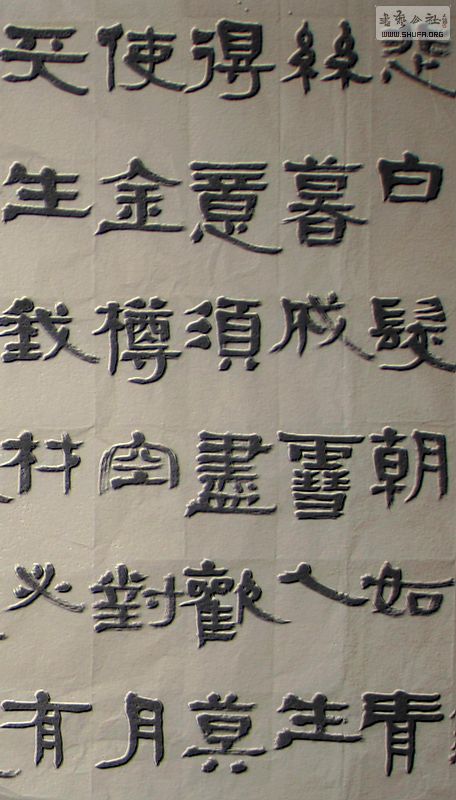 悲白髮朝如青
絲暮成雪人生
得意須盡歡莫
使金樽空對月
天生我材必有
書藝公社
WWW.SHUFA.ORG